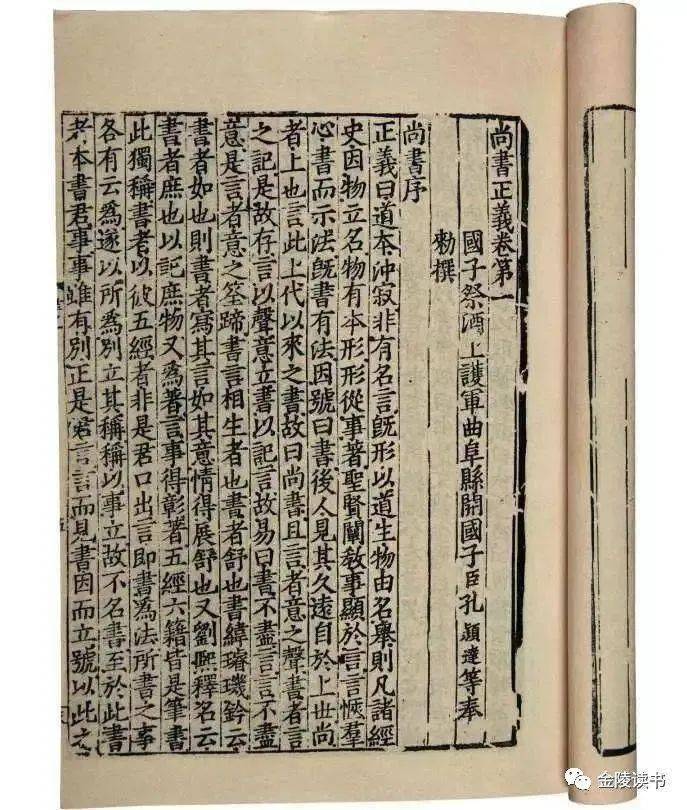 尚書正義卷第一
國子祭酒上護軍曲阜縣開國子臣孔穎達等奉
勑撰
尚書序
正義曰道本沖寂非有名言旣形以道生物由名舉則凡諸經
史因物立名物有本形形從事著聖賢闡教事顯於言言愜羣
心書而示法旣書有法因號曰書後人見其久遠自於上世尚
者上也言此上代以來之書故曰尚書且言者意之聲書者言
之記是故存言以聲意立書以記言故易曰書不盡言言不盡
意是言者意之筌蹄書言相生者也書者舒也書緯璿璣鈐云
書者如也則書者寫其言如其意情得展舒也又劉熙釋名云
書者庶也以記庶物又爲著言事得彰著五經六籍皆是筆書
此獨稱書者以彼五經者非是君口出言即書爲法所書之事
各有云爲遂以所爲別立其稱稱以事立故不名書至於此書
者本書君事事雖有別正是君言言而見書因而立號以此之
金陵读书